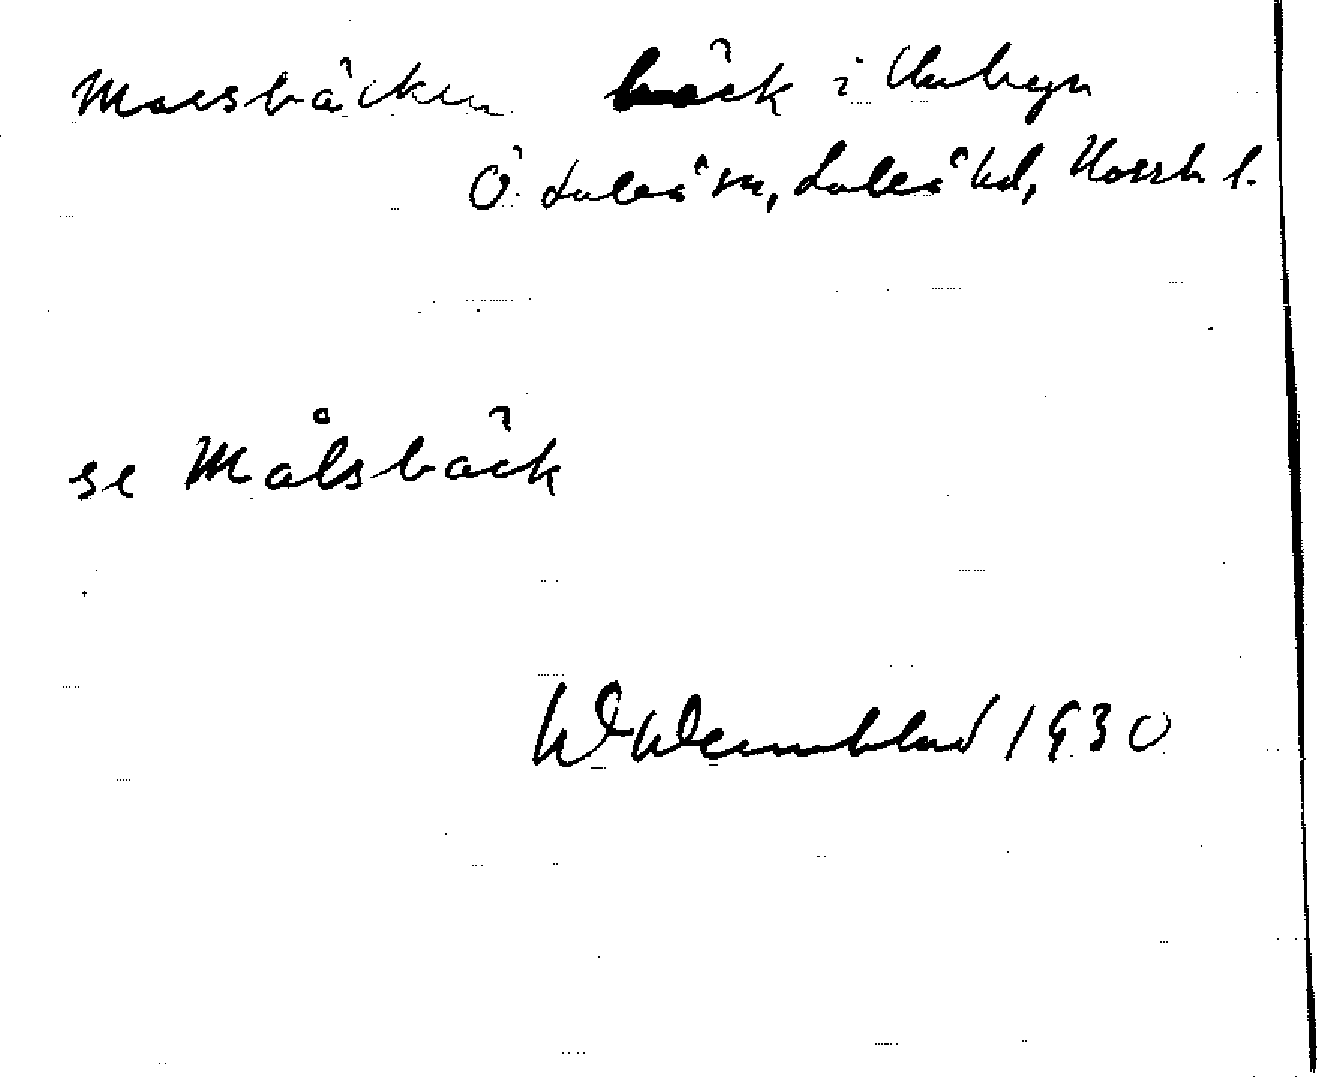 Malsbäcken bäck i Unbyn
Ö. Luleå sn, Luleå hd, Norrb. l.
se Målsbäck
W Wennblad 1930